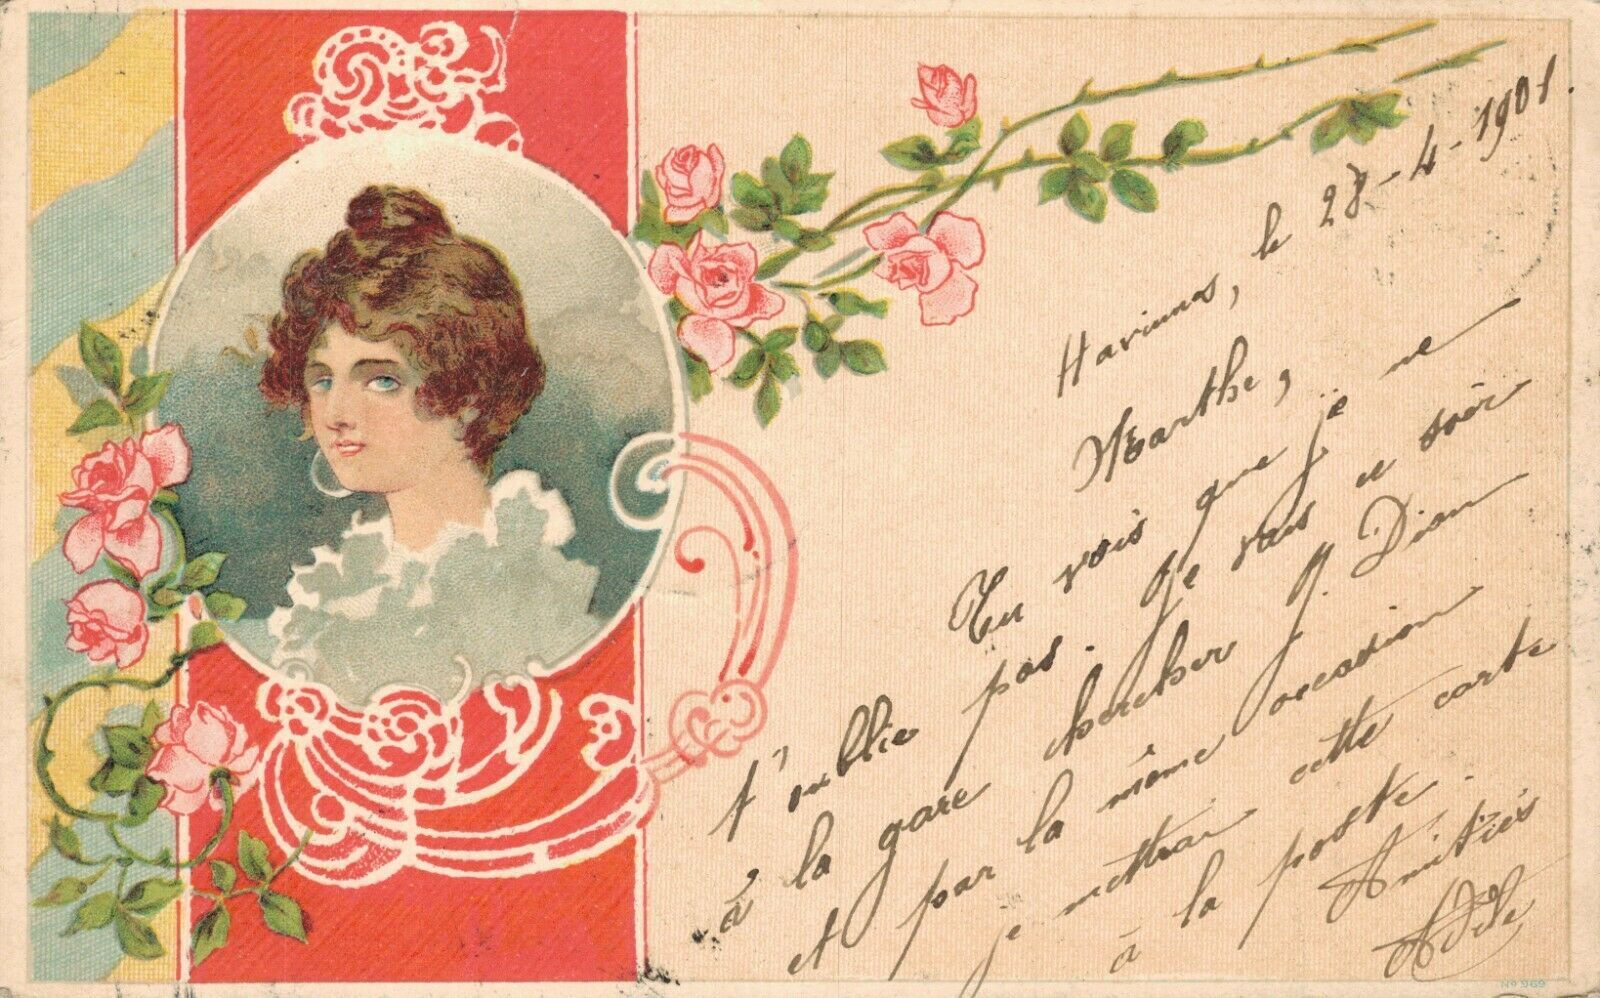 Havinnes, le 28-4-1901.
Marthe,
Tu vois que je ne
t'oublie pas. Je vais ce soir
à la gare chercher M. Dion
et par la même occasion
je mettrai cette carte
à la poste.
Amitiés
Adèle
No 969